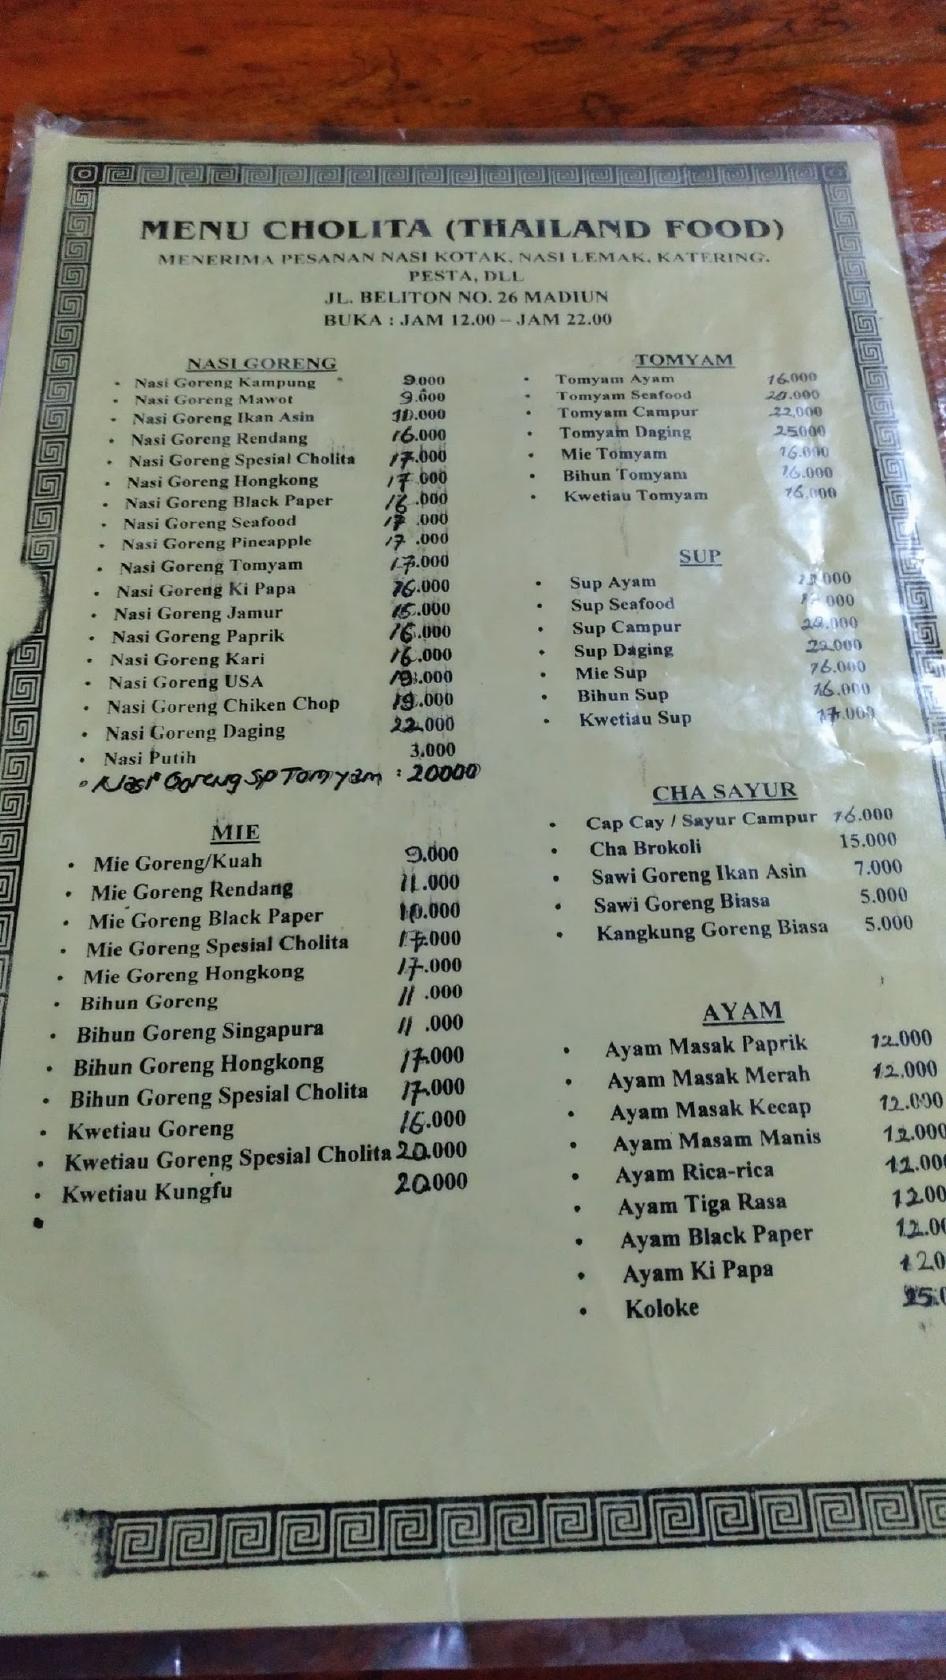 MENU CHOLITA (THAILAND FOOD)
MENERIMA PESANAN NASI KOTAK, NASI LEMAK, KATERING,
PESTA, DLL
JL. BELITON NO. 26 MADIUN
BUKA : JAM 12.00 – JAM 22.00
NASI GORENG
• Nasi Goreng Kampung 9.000
• Nasi Goreng Mawot 9.000
• Nasi Goreng Ikan Asin 10.000
• Nasi Goreng Rendang 16.000
• Nasi Goreng Spesial Cholita 17.000
• Nasi Goreng Hongkong 17.000
• Nasi Goreng Black Paper 16.000
• Nasi Goreng Seafood 17.000
• Nasi Goreng Pineapple 17.000
• Nasi Goreng Tomyam 17.000
• Nasi Goreng Ki Papa 16.000
• Nasi Goreng Jamur 15.000
• Nasi Goreng Paprik 16.000
• Nasi Goreng Kari 16.000
• Nasi Goreng USA
• Nasi Goreng Chiken Chop 19.000
• Nasi Goreng Daging 22.000
• Nasi Putih 3.000
• Nasi Goreng Sp Tomyam : 20000
MIE
• Mie Goreng/Kuah 9.000
• Mie Goreng Rendang 11.000
• Mie Goreng Black Paper 10.000
• Mie Goreng Spesial Cholita 17.000
• Mie Goreng Hongkong 17.000
• Bihun Goreng 11.000
• Bihun Goreng Singapura 11.000
• Bihun Goreng Hongkong 17.000
• Bihun Goreng Spesial Cholita 17.000
• Kwetiau Goreng 16.000
• Kwetiau Goreng Spesial Cholita 20.000
• Kwetiau Kungfu 20.000
TOMYAM
• Tomyam Ayam 16.000
• Tomyam Seafood 20.000
• Tomyam Campur 22.000
• Tomyam Daging 25000
• Mie Tomyam 16.000
• Bihun Tomyam 16.000
• Kwetiau Tomyam 16.000
SUP
• Sup Ayam
• Sup Seafood
• Sup Campur 20.000
• Sup Daging 22.000
• Mie Sup 16.000
• Bihun Sup 16.000
• Kwetiau Sup 17.000
CHA SAYUR
• Cap Cay / Sayur Campur 16.000
• Cha Brokoli 15.000
• Sawi Goreng Ikan Asin 7.000
• Sawi Goreng Biasa 5.000
• Kangkung Goreng Biasa 5.000
AYAM
• Ayam Masak Paprik 12.000
• Ayam Masak Merah 12.000
• Ayam Masak Kecap 12.000
• Ayam Masam Manis 12.000
• Ayam Rica-rica 12.000
• Ayam Tiga Rasa 12.00
• Ayam Black Paper 12.0
• Ayam Ki Papa 12.0
• Koloke